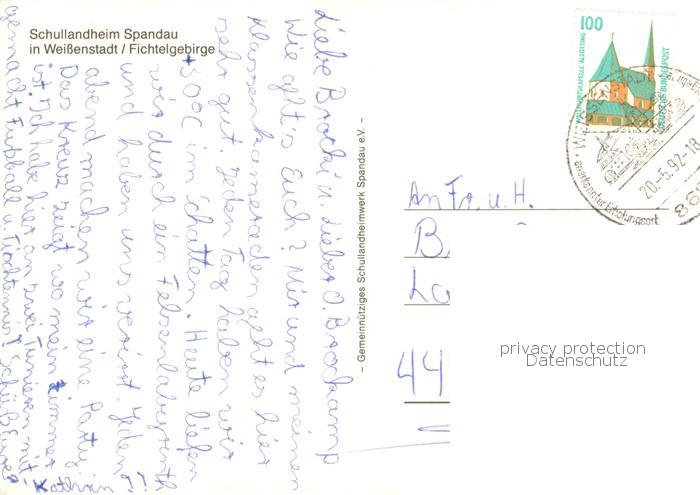 Schullandheim Spandau
in Weißenstadt / Fichtelgebirge
Liebe Brocki u. Lieber O. Brockamp
Wie geht's Euch? Mir und meinen
Klassenkameraden geht es hier
sehr gut. Jeden Tag haben wir
+30°C im Schatten. Heute liefen
wir durch ein Felsenlabyrinth
und haben uns verirrt. Jeden
abend machen wir eine Party
Das Kreuz zeigt wo mein Zimmer
ist. Ich habe hier an zwei Turnieren mit
gemacht Fußball u. Tischtennis! Schüß Eure
Kathrin
– Gemeinnütziges Schullandheimwerk Spandau e.V. –
100
WALLFAHRTSKAPELLE ALTÖTTING
DEUTSCHE BUNDESPOST
20.-5.92-18
anerkannter Erholungsort
An Fr. u. H.
B
Lo
44
privacy protection
Datenschutz